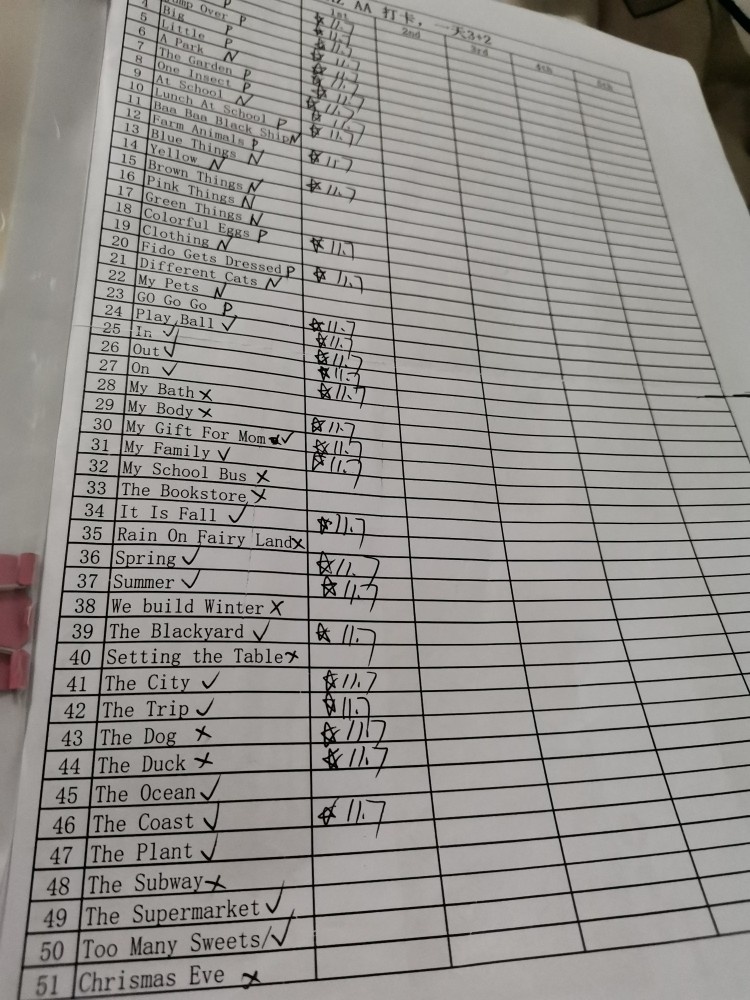 AA 打卡，一天3+2
1st 2nd 3rd 4th 5th
Jump Over P ☆ 11.7
4 Big P ☆ 11.7
5 Little P ☆ 11.7
6 A Park N ☆ 11.7
7 The Garden P ☆ 11.7
8 One Insect P ☆ 11.7
9 At School N ☆ 11.7
10 Lunch At School P ☆ 11.7
11 Baa Baa Black Ship N
12 Farm Animals P ☆ 11.7
13 Blue Things N
14 Yellow N ☆ 11.7
15 Brown Things N
16 Pink Things N
17 Green Things N
18 Colorful Eggs P ☆ 11.7
19 Clothing N
20 Fido Gets Dressed P ☆ 11.7
21 Different Cats N
22 My Pets N
23 GO Go Go P ☆ 11.7
24 Play Ball ✓ ☆ 11.7
25 In ✓ ☆ 11.7
26 Out ✓ ☆ 11.7
27 On ✓ ☆ 11.7
28 My Bath ×
29 My Body ×
30 My Gift For Mom ✓ ☆ 11.7
31 My Family ✓ ☆ 11.7
32 My School Bus × ☆ 11.7
33 The Bookstore ×
34 It Is Fall ✓ ☆ 11.7
35 Rain On Fairy Land ×
36 Spring ✓ ☆ 11.7
37 Summer ✓ ☆ 11.7
38 We build Winter ×
39 The Blackyard ✓ ☆ 11.7
40 Setting the Table ×
41 The City ✓ ☆ 11.7
42 The Trip ✓ ☆ 11.7
43 The Dog × ☆ 11.7
44 The Duck × ☆ 11.7
45 The Ocean ✓
46 The Coast ✓ ☆ 11.7
47 The Plant ✓
48 The Subway ×
49 The Supermarket ✓
50 Too Many Sweets/ ✓
51 Chrismas Eve ×